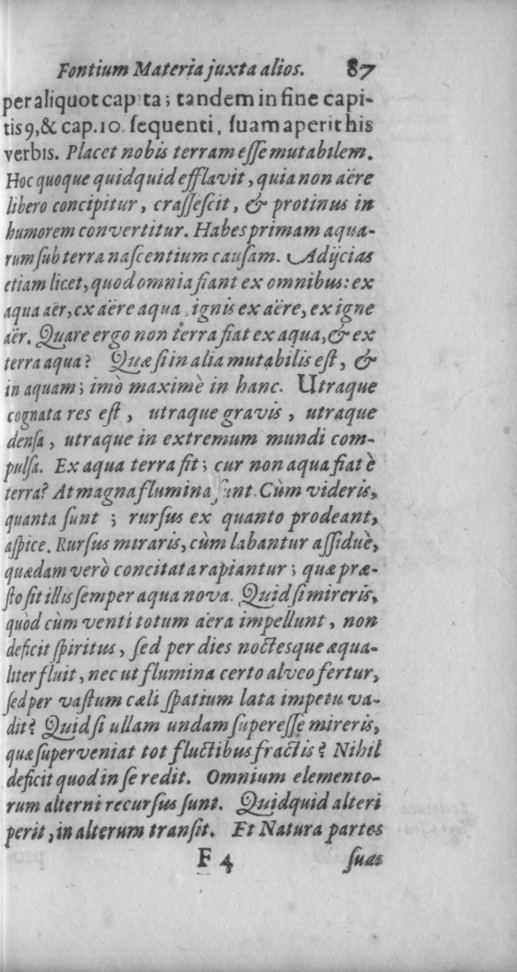 Fontium Materia juxta alios. 87
per aliquot cap ta; tandem in fine capi-
tis 9, & cap. 10. sequenti, suam aperit his
verbis. Placet nobis terram esse mutabilem.
Hoc quoque quidquid efflavit, quia non aëre
libero concipitur, crassescit, & protinus in
humorem convertitur. Habes primam aqua-
rum sub terra nascentium causam. Adijcias
etiam licet, quod omnia fiant ex omnibus: ex
aqua aër, ex aëre aqua, ignis ex aëre, ex igne
aër. Quare ergo non terra fiat ex aqua, & ex
terra aqua? Quæ si in alia mutabilis est, &
in aquam; imò maximè in hanc. Utraque
cognata res est, utraque gravis, utraque
densa, utraque in extremum mundi com-
pulsa. Ex aqua terra fit; cur non aqua fiat è
terra? At magna flumina sunt. Cùm videris,
quanta sunt; rursus ex quanto prodeant,
aspice. Rursus miraris, cùm labantur assiduè,
quædam verò concitata rapiantur; quæ præ-
sto sit illis semper aqua nova. Quid si mireris,
quòd cùm venti totum aëra impellunt, non
deficit spiritus, sed per dies noctesque æqua-
liter fluit, nec ut flumina certo alveo fertur,
sed per vastum cæli spatium lata impetu va-
dit? Quid si ullam undam superesse mireris,
quæ superveniat tot fluctibus fractis? Nihil
deficit quod in se redit. Omnium elemento-
rum alterni recursus sunt. Quidquid alteri
perit, in alterum transit. Et Natura partes
F 4 suas